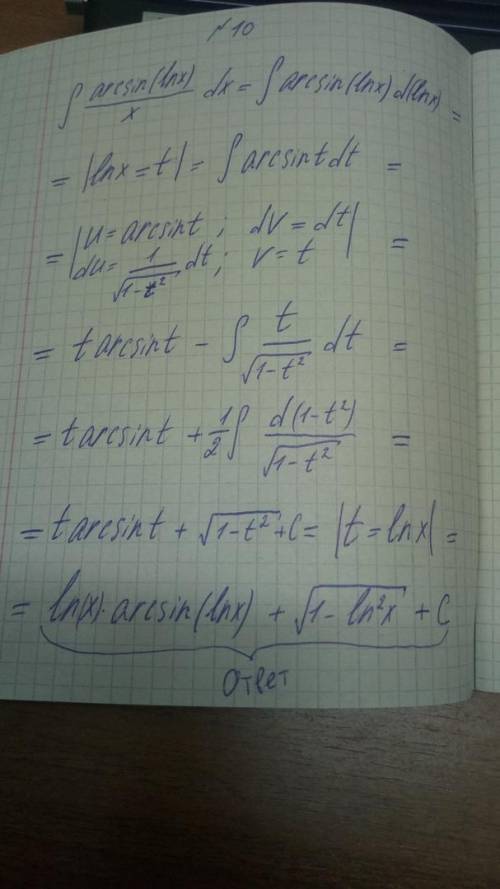 №10
∫ arcsin(lnx)/x dx = ∫ arcsin(lnx) d(lnx) =
= |lnx = t| = ∫ arcsint dt =
= |u = arcsint ; dv = dt|
du = 1/√(1-t²) dt ; v = t =
= t arcsint - ∫ t/√(1-t²) dt =
= t arcsint + 1/2 ∫ d(1-t²)/√(1-t²) =
= t arcsint + √(1-t²) + C = |t = lnx| =
= ln(x)·arcsin(lnx) + √(1-ln²x) + C
ответ